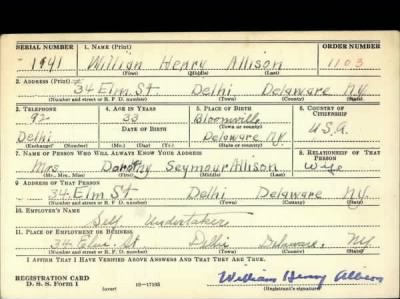 SERIAL NUMBER 1. NAME (Print) ORDER NUMBER
1941 William Henry Allison 1103
(First) (Middle) (Last)
2. ADDRESS (Print)
34 Elm St. Delhi Delaware N.Y.
(Number and street or R. F. D. number) (Town) (County) (State)
3. TELEPHONE 4. AGE IN YEARS 5. PLACE OF BIRTH 6. COUNTRY OF CITIZENSHIP
92 33 Bloomville
DATE OF BIRTH (Town or county) U.S.A.
Delhi Delaware N.Y.
(Exchange) (Number) (Mo.) (Day) (Yr.) (State or country)
7. NAME OF PERSON WHO WILL ALWAYS KNOW YOUR ADDRESS 8. RELATIONSHIP OF THAT PERSON
Mrs Dorothy Seymour Allison Wife
(Mr., Mrs., Miss) (First) (Middle) (Last)
9. ADDRESS OF THAT PERSON
34 Elm St Delhi Delaware N.Y.
(Number and street or R. F. D. number) (Town) (County) (State)
10. EMPLOYER'S NAME
Self Undertaker
11. PLACE OF EMPLOYMENT OR BUSINESS
34 Elm St Delhi Delaware NY
(Number and street or R. F. D. number) (Town) (County) (State)
I AFFIRM THAT I HAVE VERIFIED ABOVE ANSWERS AND THAT THEY ARE TRUE.
REGISTRATION CARD William Henry Allison
D. S. S. Form 1 (over) 16—17105 (Registrant's signature)